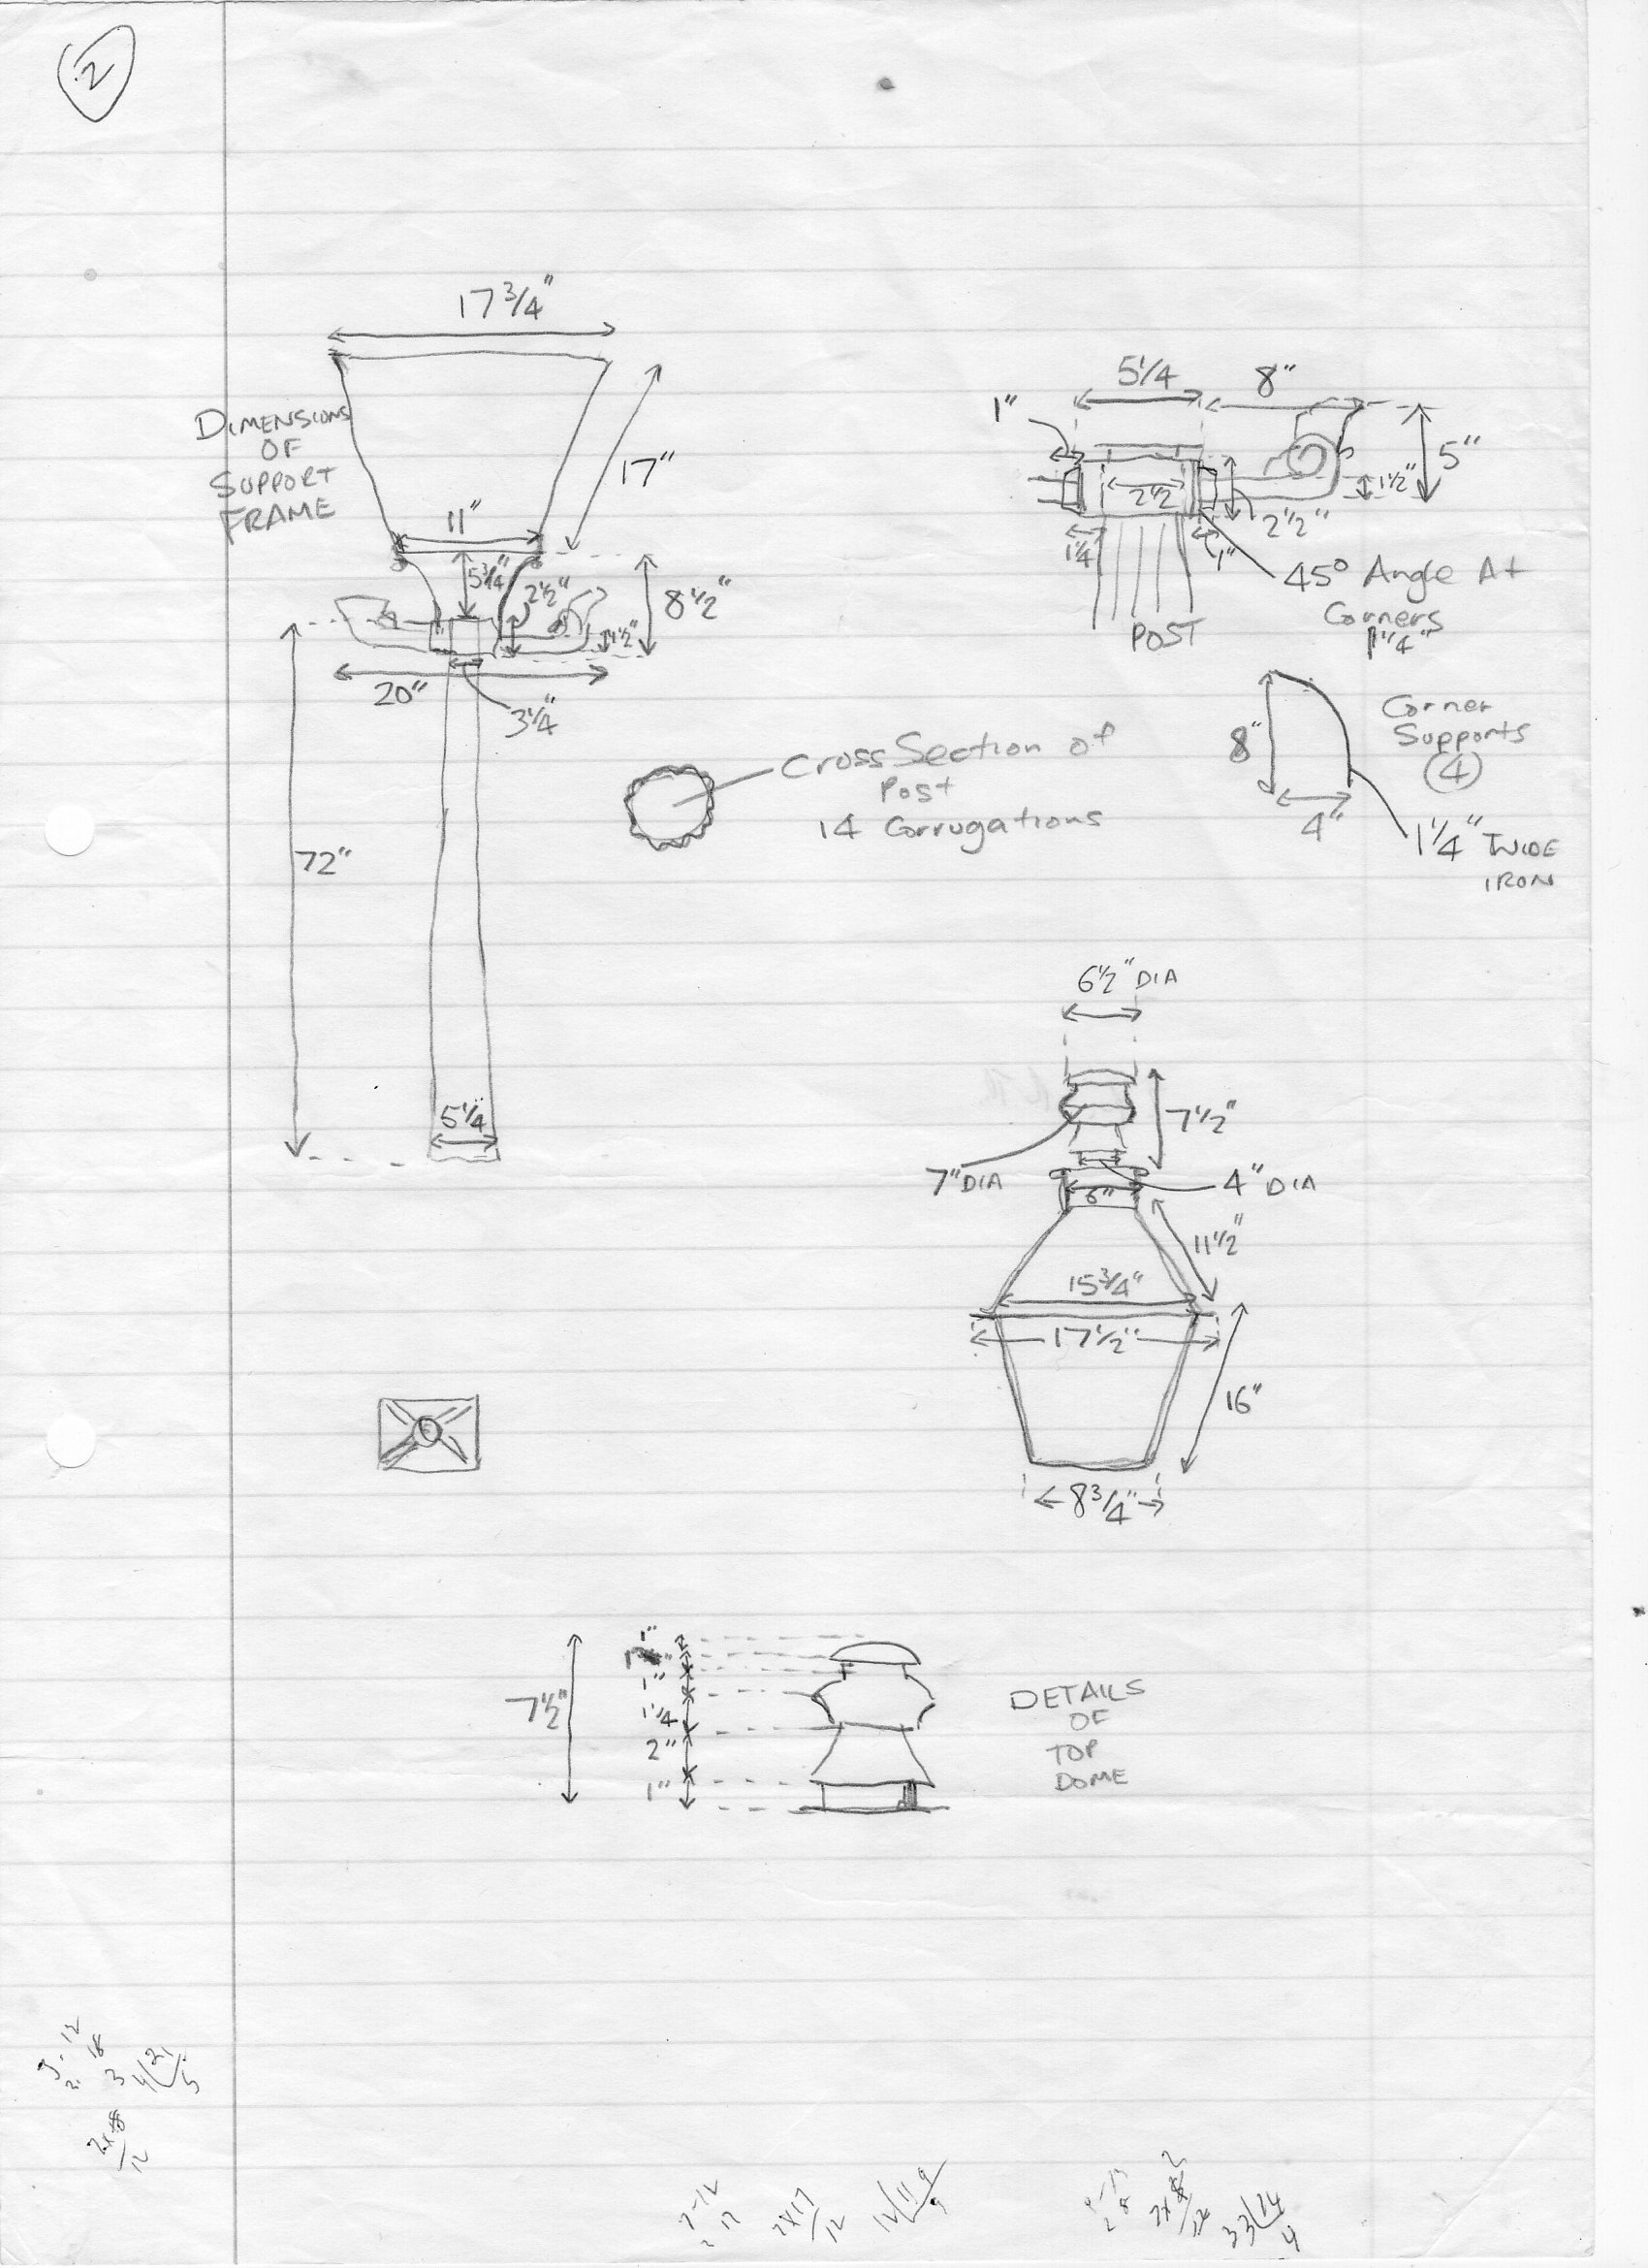 2
17 3/4"
DIMENSIONS
OF
SUPPORT
FRAME
17"
11"
5 3/4"
2 1/2"
8 1/2"
1 1/2"
20"
3 1/4"
72"
5 1/4"
Cross Section of
Post
14 Corrugations
5 1/4
8"
1"
5"
1 1/2"
2 1/2
2 1/2"
1 1/4
1"
45° Angle At
Corners
1 1/4"
POST
8"
4"
Corner
Supports
4
1 1/4" WIDE
IRON
6 1/2" DIA
7 1/2"
7" DIA
4" DIA
6"
11 1/2"
15 3/4"
17 1/2"
16"
8 3/4"
7 1/2"
1"
1"
1 1/4
2"
1"
DETAILS
OF
TOP
DOME